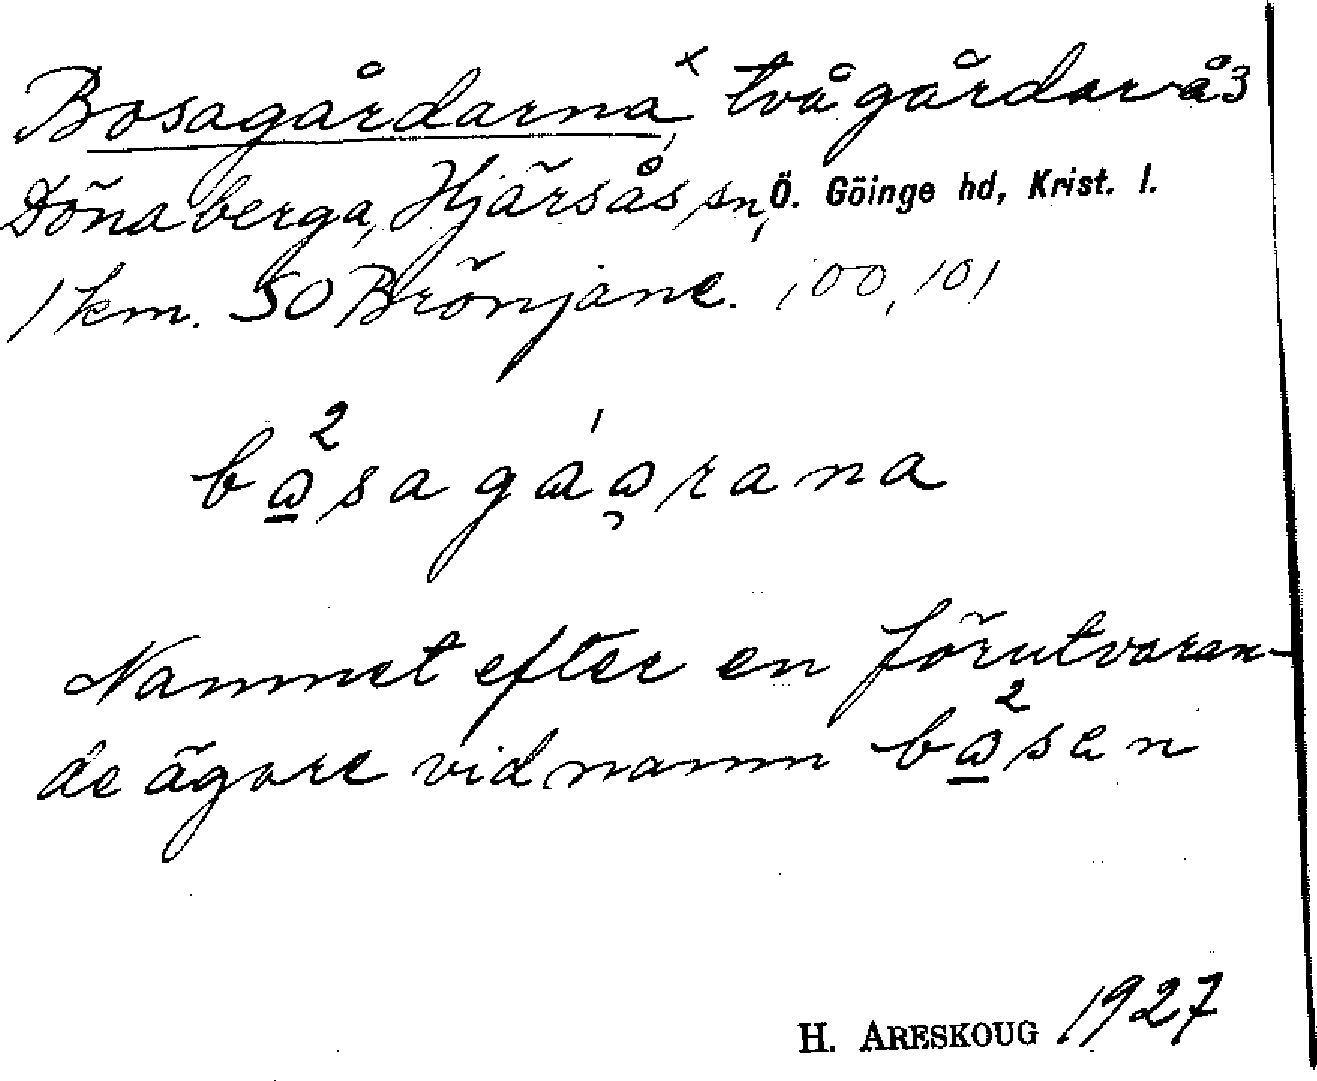 Bosagårdarna, x två gårdar å 3
Dönaberga, Hjärsås sn, Ö. Göinge hd, Krist. l.
1 km. SO Brönjane. 100, 101
Namnet efter en förutvaran-
de ägare vid namn
H. ARESKOUG 1927